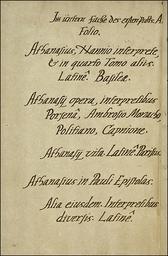 In untern fache des ersten pultes A
Folio.
Athanasius, Nannio interprete,
& in quarto Tomo alius.
Latinè. Basileæ.
Athanasij opera, interpretibus
Porsena, Ambrosio Monacho,
Politiano, Capnione.
Athanasij vita Latinè Parisijs.
Athanasius in Pauli Epistolas.
Alia eiusdem. Interpretibus
diversis. Latinè.